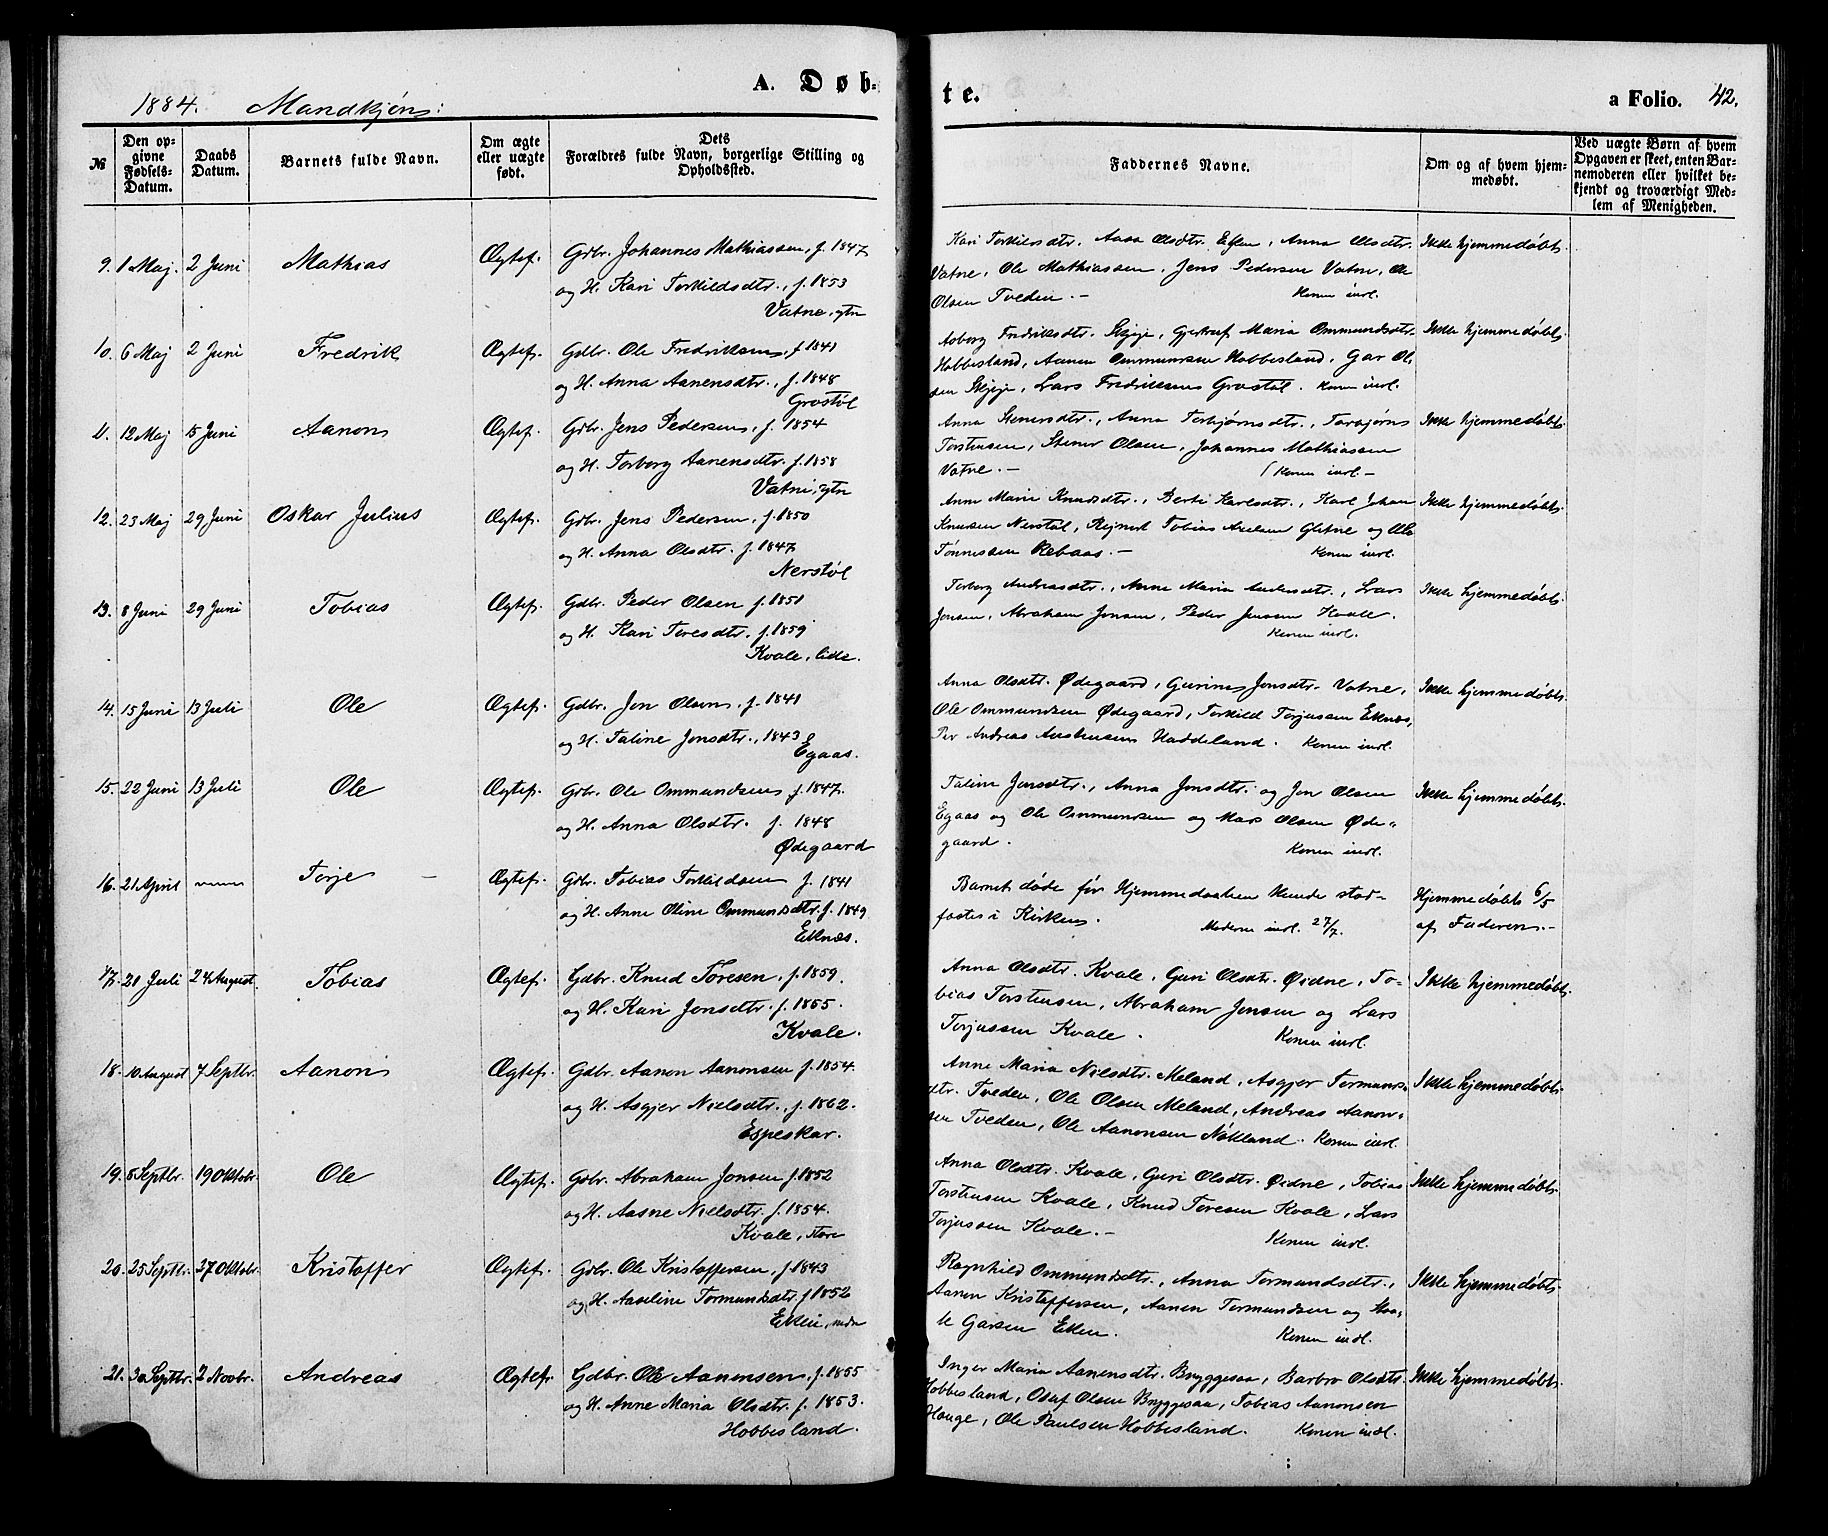 1884. Mandkjøn:
A. Døb-
te.
a Folio. 42.
№
Den op-
givne
Fødsels-
Datum.
Daabs
Datum.
Barnets fulde Navn.
Om ægte
eller uægte
født.
Dets
Forældres fulde Navn, borgerlige Stilling og
Opholdssted.
Faddernes Navne.
Om og af hvem hjem-
medøbt.
Ved uægte Børn af hvem
Opgaven er skeet, enten Bar-
nemoderen eller hvilket be-
kjendt og troværdigt Med-
lem af Menigheden.
9. 1 Maj. 2 Juni Mathias Ægtef. Gdbr. Johannes Mathiassen, f. 1847
og H. Kari Torkildsdtr., f. 1853
Vatne, ytn
Kari Torkilsdtr. Aasa Olsdtr. Eken, Anna Olsdtr.
Vatne, Ole Mathiassen, Jens Pedersen Vatne, Ole
Olsen Tveden. – Konen indl.
Ikke hjemmedøbt.
10. 6 Maj 2 Juni Fredrik Ægtef. Gdbr. Ole Fredriksen, f 1841
og H. Anna Aanensdtr., f. 1848
Grostøl
Aoborg Fredriksdtr. Skjeje, Gjertruf Maria Ommundsdtr.
Hobbesland, Aanen Ommunsen Hobbesland, Gar Ol-
sen Skjeje, Lars Fredriksen Grostøl. Konen indl.
Ikke hjemmedøbt.
11. 12 Maj 15 Juni Aanon Ægtef. Gdbr. Jens Pedersen, f. 1854
og H. Torborg Aanensdtr. f. 1858
Vatne, ytn
Anna Stenersdtr., Anna Torbjørnsdtr., Tarasjøn
Torstensen, Stener Olsen, Johannes Mathiassen
Vatne. – Konen indl. –
Ikke hjemmedøbt.
12. 23 Maj 29 Juni Oskar Julius Ægtef. Gdbr. Jens Pedersen, f. 1850
og H. Anna Olsdtr. f. 1847
Nerstøl
Anne Marie Knudsdtr., Berte Karlsdtr., Karl Johan
Knudsen Nerstøl, Rejnert Tobias Axelsen Glitne og Ole
Tønnessen Rebaas. – Konen indl.
Ikke hjemmedøbt.
13. 8 Juni 29 Juni Tobias Ægtef. Gdbr. Peder Olsen f. 1851
og H. Kari Toresdtr. f. 1859
Kvale, lide.
Torborg Andreasdtr., Anne Maria Andersdtr., Lars
Jonsen, Abraham Jonsen, Peder Jensen Kvale.
Konen indl.
Ikke hjemmedøbt.
14. 15 Juni 13 Juli Ole Ægtef. Gdbr. Jon Olsen, f. 1841
og H. Taline Jonsdtr., 1843
Egaas.
Anna Olsdtr. Ødegaard, Gurine Jonsdtr. Vatne,
Ole Ommundsen Ødegaard, Torkild Torjussen Eknæs,
Per Andreas Haddeland. Konen indl.
Ikke hjemmedøbt.
15. 22 Juni 13 Juli Ole Ægtef. Gdbr. Ole Ommundsen f. 1847.
og H. Anna Olsdtr. f. 1848
Ødegaard
Taline Jonsdtr., Anna Jonsdtr. og Jon Olsen
Egaas og Ole Ommundsen og Mars Olsen Øde-
gaard. Konen indl.
Ikke hjemmedøbt.
16. 21 April Torje – Ægtef. Gdbr. Tobias Torkildsen f. 1841
og H. Anne Oline Ommundsdtr. f. 1849
Eknæs.
Barnet døde før Hjemmedaaben kunde stad-
fæstes i Kirken. Moderen indl. 27/7.
Hjemmedøbt 6/5
af Faderen. –
17. 21 Juli 24 August Tobias Ægtef. Gdbr. Knud Toresen, f. 1859.
og H. Kari Jonsdtr. f. 1855.
Kvale.
Anna Olsdtr. Kvale, Guri Olsdtr. Øidne, To-
bias Torstensen, Abraham Jonsen og Lars
Torjussen Kvale. Konen indl.
Ikke hjemmedøbt.
18. 10 August 7 Septbr. Aanon Ægtef. Gdbr. Aanon Aanonsen f. 1854.
og H. Asgjer Nielsdtr., f. 1862.
Espeskar.
Anne Maria Nielsdtr. Meland, Asgjer Tormuns-
dtr. Tveden, Ole Olsen Meland, Andreas Aanon-
sen Tveden, Ole Aanonsen Nökland. Konen indl.
Ikke hjemmedøbt.
19. 8 Septbr. 19 Oktobr. Ole Ægtef. Gdbr. Abraham Jonsen f. 1852
og H. Aasne Nielsdtr. f. 1854.
Kvale, store
Anna Olsdtr. Kvale, Guri Olsdtr. Øidne, Tobias
Torstensen Kvale, Knud Toresen Kvale, Lars
Torjussen Kvale. – Konen indl.
Ikke hjemmedøbt.
20. 25 Septbr. 27 Oktobr. Kristoffer Ægtef. Gdbr. Ole Kristoffersen, f. 1843
og H. Aaseline Tormundsdtr. f 1852
Eken, nedre
Ragnhild Ommundsdtr., Anna Tormundsdtr.,
Aanen Kristoffersen, Aanen Tormundsen og
Garsen Eken. Konen indl.
Ikke hjemmedøbt.
21. 30 Septbr. 2 Novbr. Andreas Ægtef. Gdbr. Ole Aanonsen, f. 1855
og H. Anne Maria Olsdtr. f. 1853.
Hobbesland.
Inger Maria Aanensdtr. Bryggesaa, Barbro Olsdtr.
Hobbesland, Olaf Olsen Bryggesaa, Tobias Aanonsen
Houge, Ole Paulsen Hobbesland. Konen indl.
Ikke hjemmedøbt.